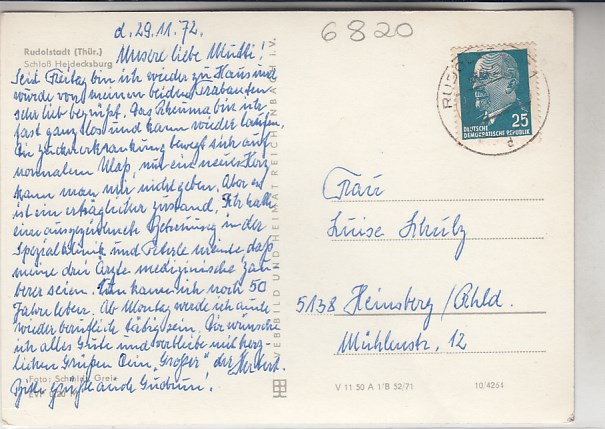 d. 29.11.72.
6820
Rudolstadt (Thür.)
Schloß Heidecksburg
Unsere liebe Mutti!
Seit Freitag bin ich wieder zu Haus und
wurde von meinen beiden Trabanten
sehr lieb begrüßt. Das Rheuma bin ich
fast ganz los und kann wieder laufen.
Die Zuckererkrankung bewegt sich auf
normalem Maß, nur ein neues Herz
kann man mir nicht geben. Aber es
ist ein erträglicher Zustand. Ich hatte
eine ausgezeichnete Betreuung in der
Spezialklinik und Peterle meinte, daß
meine drei Ärzte medizinische Zau
berer seien. Nun kann ich noch 50
Jahre leben. Ab Montag werde ich auch
wieder beruflich tätig sein. Dir wünsche
ich alles Gute und verbleibe mit herz-
lichen Grüßen Dein "Großer" der Herbert.
Bitte grüße auch Gudrun!
Foto: Schmidt, Greiz
EVP 0,20 M
VEB BILD UND HEIMAT REICHENBACH i. V.
V 11 50 A 1/B 52/71
10/4264
RUDOL
d
25
DEUTSCHE
DEMOKRATISCHE REPUBLIK
Frau
Luise Schulz
5138 Heinsberg/Rhld.
Mühlenstr. 12